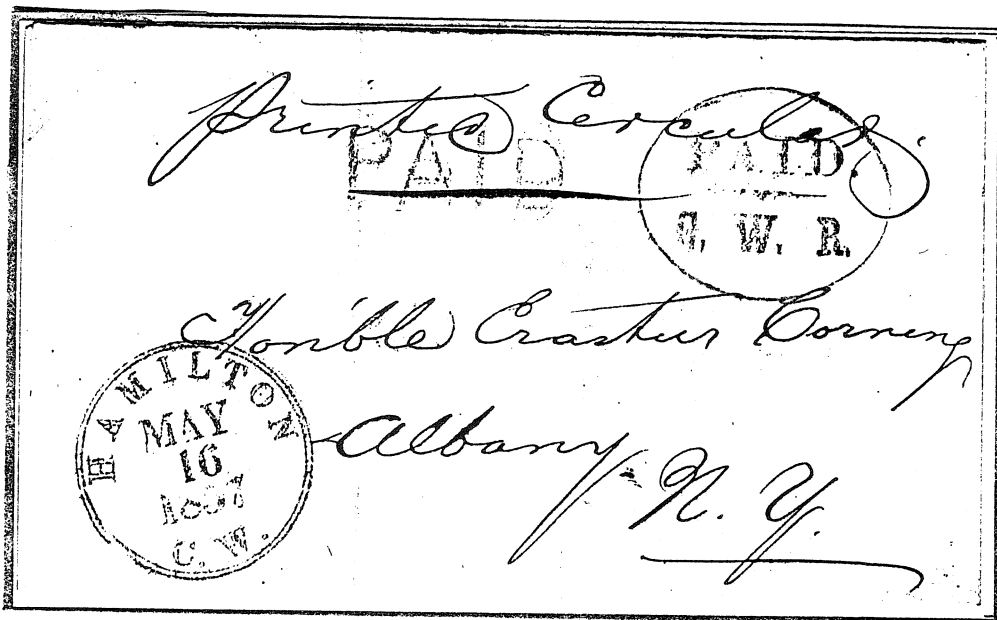 Printed Circular.
PAID
PAID.
G. W. R.
Hon'ble Erastus Corning
Albany N. Y.
HAMILTON
MAY
16
1857
C. W.